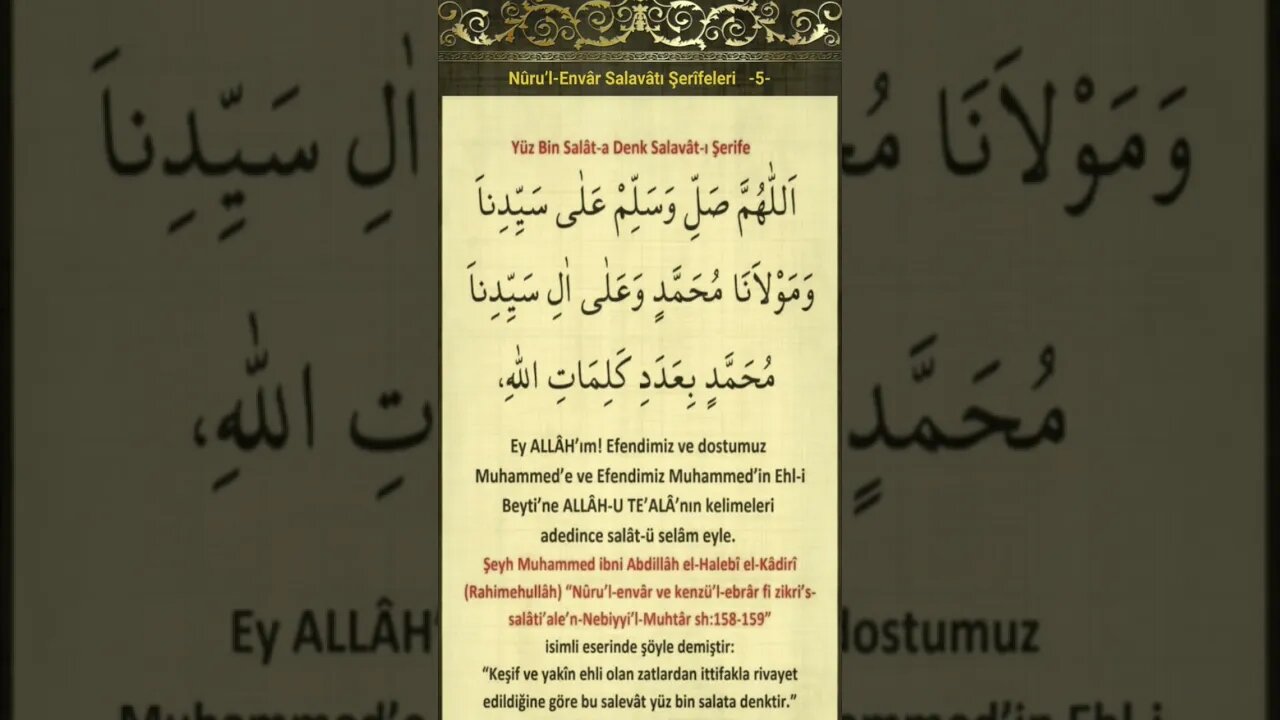 Nûru’l-Envâr Salavâtı Şerîfeleri -5-
Yüz Bin Salât-a Denk Salavât-ı Şerife
اَللّٰهُمَّ صَلِّ وَسَلِّمْ عَلٰى سَيِّدِناَ
وَمَوْلاَنَا مُحَمَّدٍ وَعَلٰى اٰلِ سَيِّدِناَ
مُحَمَّدٍ بِعَدَدِ كَلِمَاتِ اللّٰهِ،
Ey ALLÂH’ım! Efendimiz ve dostumuz
Muhammed’e ve Efendimiz Muhammed’in Ehl-i
Beyti’ne ALLÂH-U TE’ALÂ’nın kelimeleri
adedince salât-ü selâm eyle.
Şeyh Muhammed ibni Abdillâh el-Halebî el-Kâdirî
(Rahimehullâh) “Nûru’l-envâr ve kenzü’l-ebrâr fi zikri’s-
salâti’ale’n-Nebiyyi’l-Muhtâr sh:158-159”
isimli eserinde şöyle demiştir:
“Keşif ve yakîn ehli olan zatlardan ittifakla rivayet
edildiğine göre bu salevât yüz bin salata denktir.”